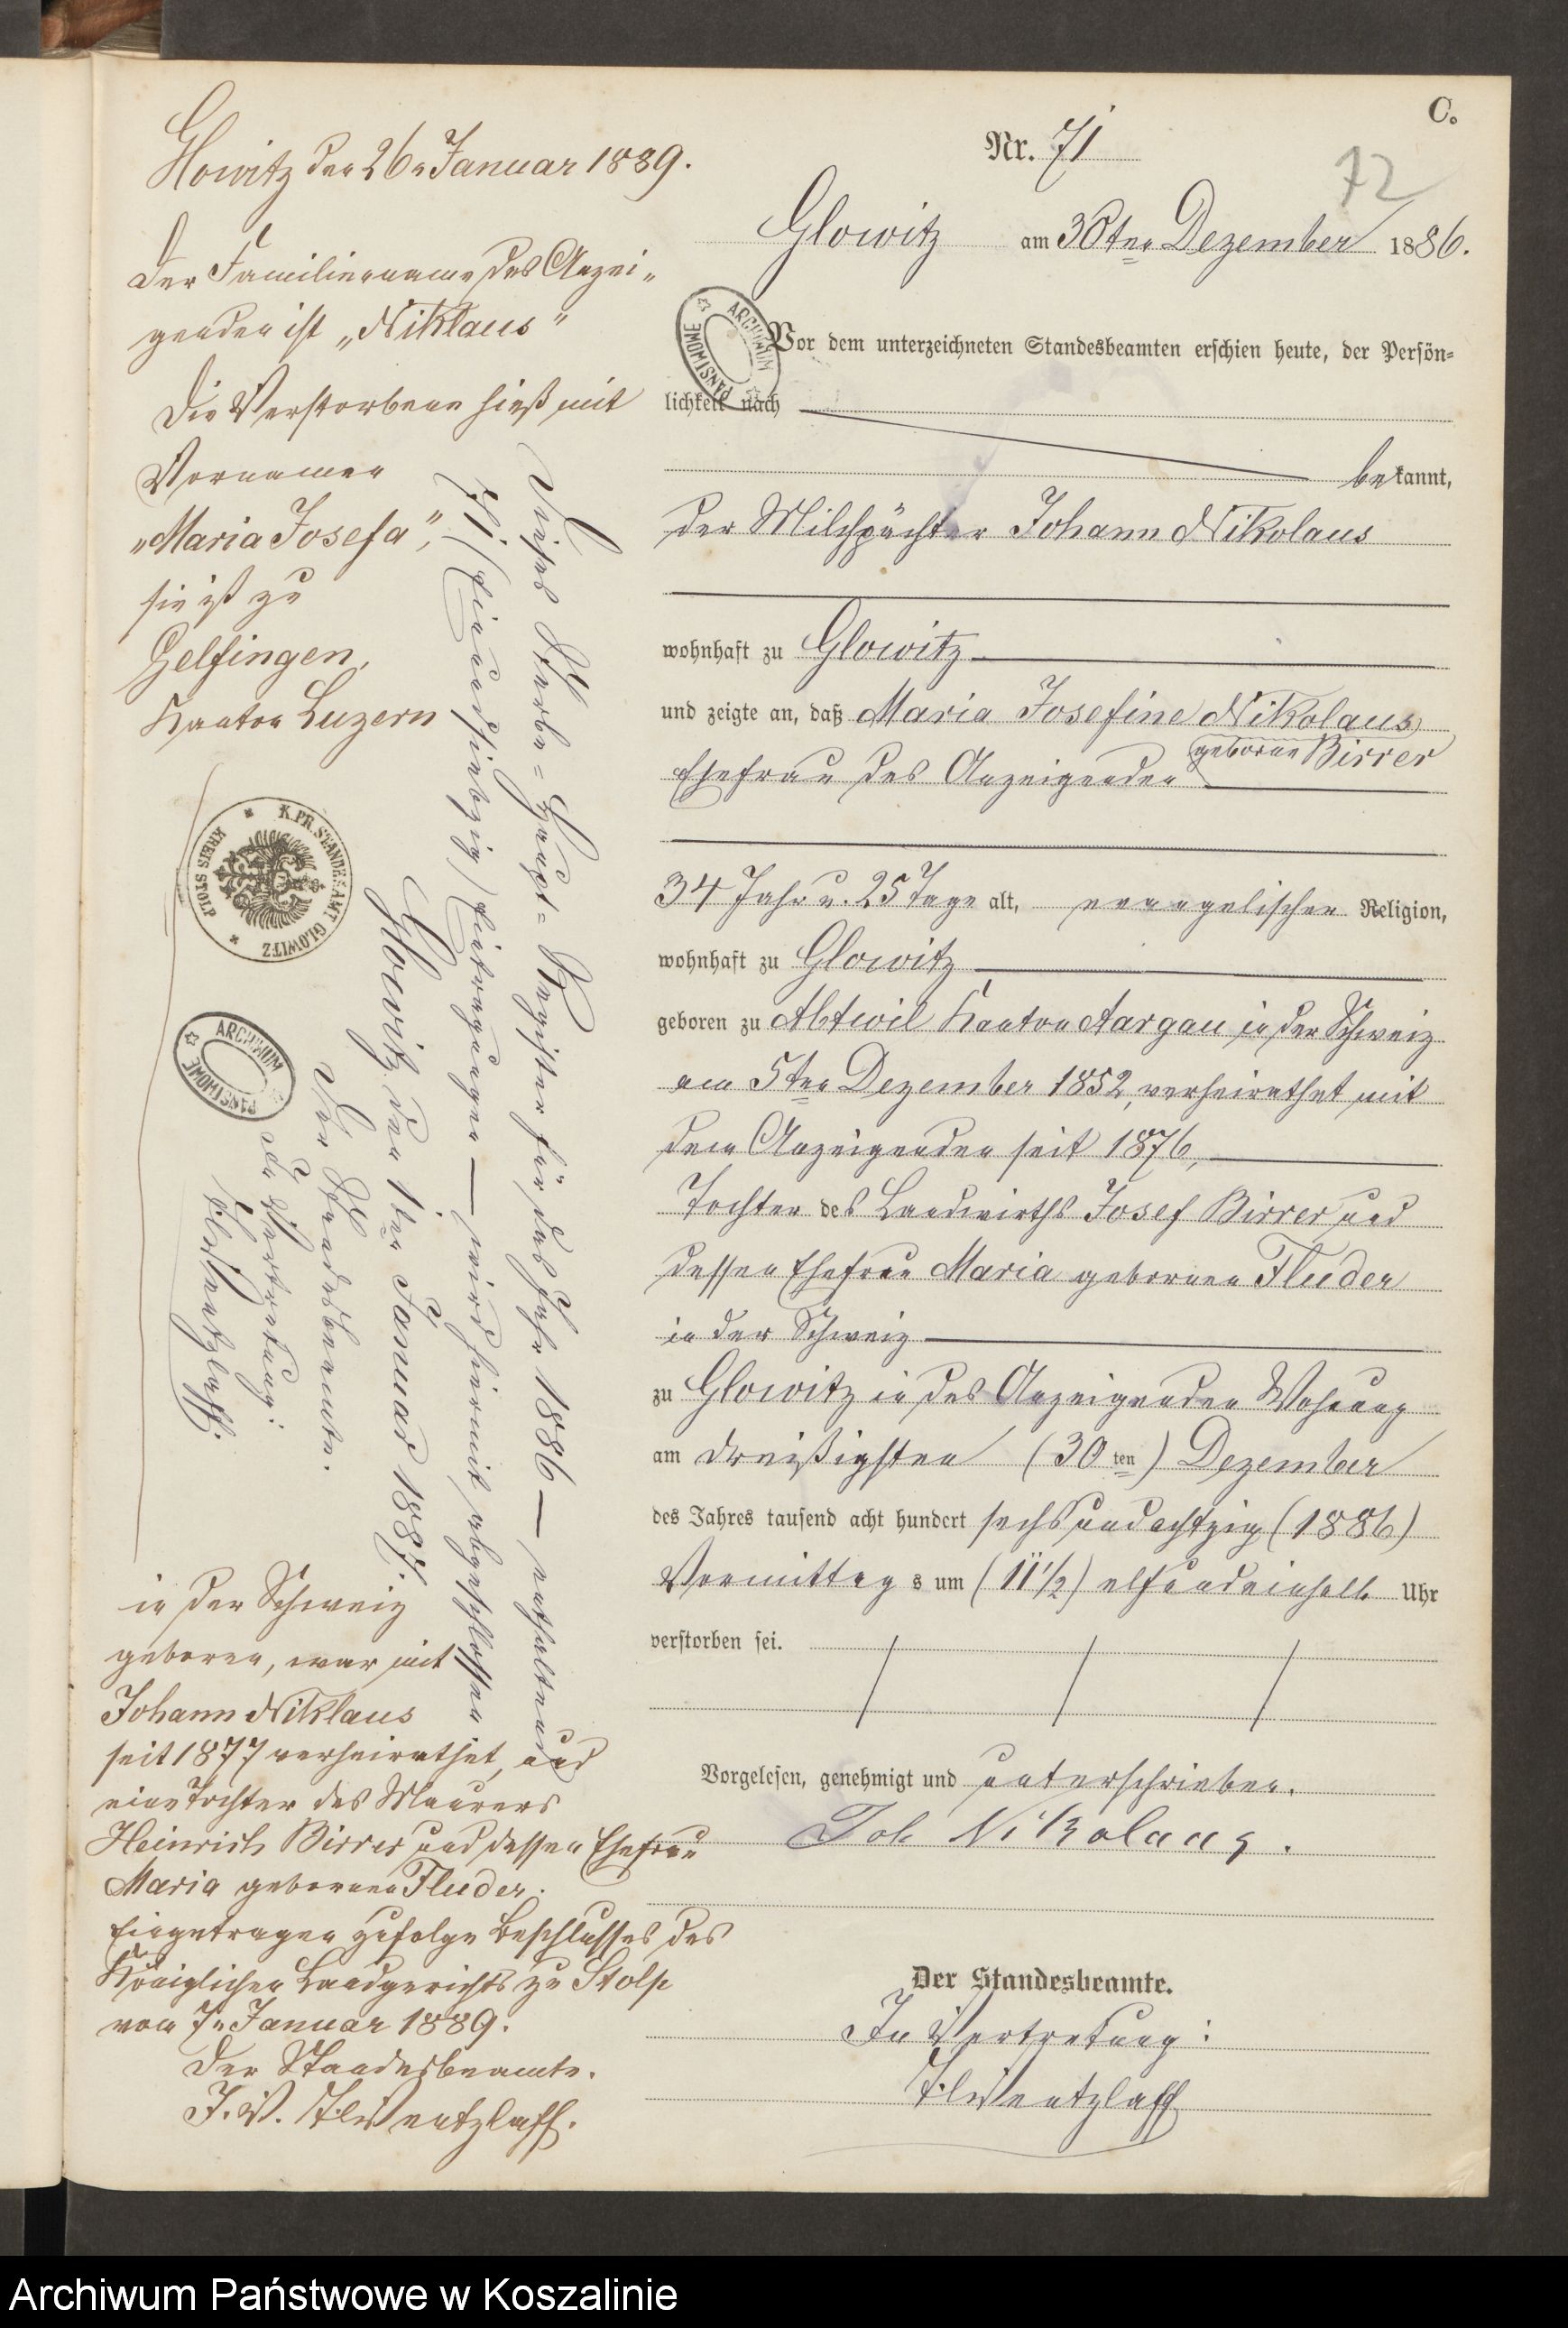 C.
Nr. 71
72
Glowitz am 30ten Dezember 1886.
Vor dem unterzeichneten Standesbeamten erschien heute, der Persön-
lichkeit nach
bekannt,
der Milchpächter Johann Nikolaus
wohnhaft zu Glowitz
und zeigte an, daß Maria Josefine Nikolaus
geborne Birrer
Ehefrau des Anzeigenden
34 Jahr u. 25 Tage alt, evangelischen Religion,
wohnhaft zu Glowitz
geboren zu Abtwil Kanton Aargau in der Schweiz
am 5ten Dezember 1852, verheirathet mit
dem Anzeigenden seit 1876,
Tochter des Landwirths Josef Birrer und
dessen Ehefrau Maria gebornen Fluder
in der Schweiz
zu Glowitz in des Anzeigenden Wohnung
am dreißigsten (30ten) Dezember
des Jahres tausend acht hundert sechsundachtzig (1886)
Vormittags um (11 1/2) elfundeinhalb Uhr
verstorben sei.
Vorgelesen, genehmigt und unterschrieben.
Joh Nikolaus.
Der Standesbeamte.
In Vertretung:
Wentzlaff
Glowitz den 26n Januar 1889.
Der Familienname des Anzei-
genden ist „Niklaus"
Die Verstorbene hieß mit
Vornamen
„Maria Josefa",
sie ist zu
Gelfingen,
Kanton Luzern
in der Schweiz
geboren, war mit
Johann Niklaus
seit 1877 verheirathet, und
eine Tochter des Maurers
Heinrich Birrer und dessen Ehefrau
Maria gebornen Fluder.
Eingetragen zufolge Beschlusses des
Königlichen Landgerichts zu Stolp
vom 7n Januar 1889.
Der Standesbeamte.
J. V. Wentzlaff.
Dieses Sterbe-Haupt-Register für das Jahr 1886 — enthaltend
71 (einundsiebzig) Eintragungen — wird hiermit abgeschlossen
Glowitz den 1ten Januar 1887.
Der Standesbeamte.
In Vertretung:
Wentzlaff.
K. PR. STANDESAMT GLOWITZ
KREIS STOLP
ARCHIWUM PAŃSTWOWE
ARCHIWUM PAŃSTWOWE
Archiwum Państwowe w Koszalinie